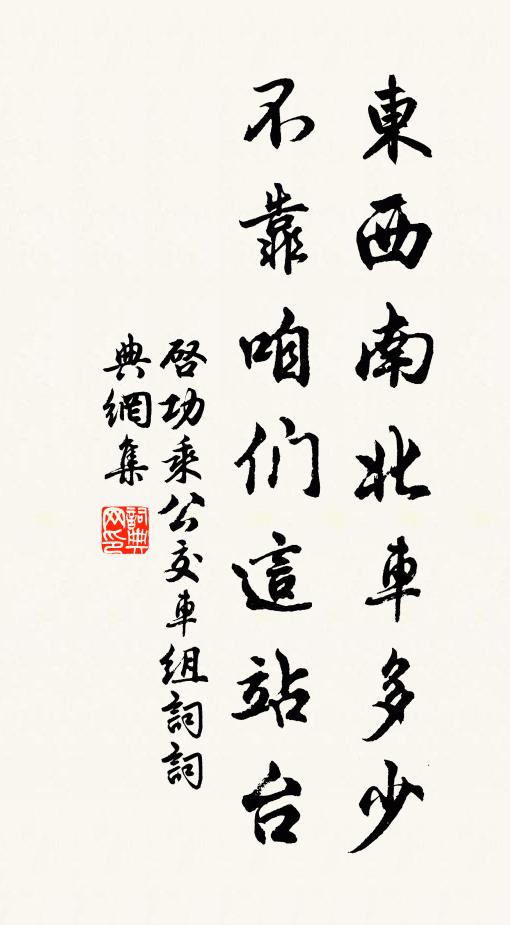 東西南北車多少
不靠咱们這站台
啓功乘公交車组詞詞
典網集
詞典
网印